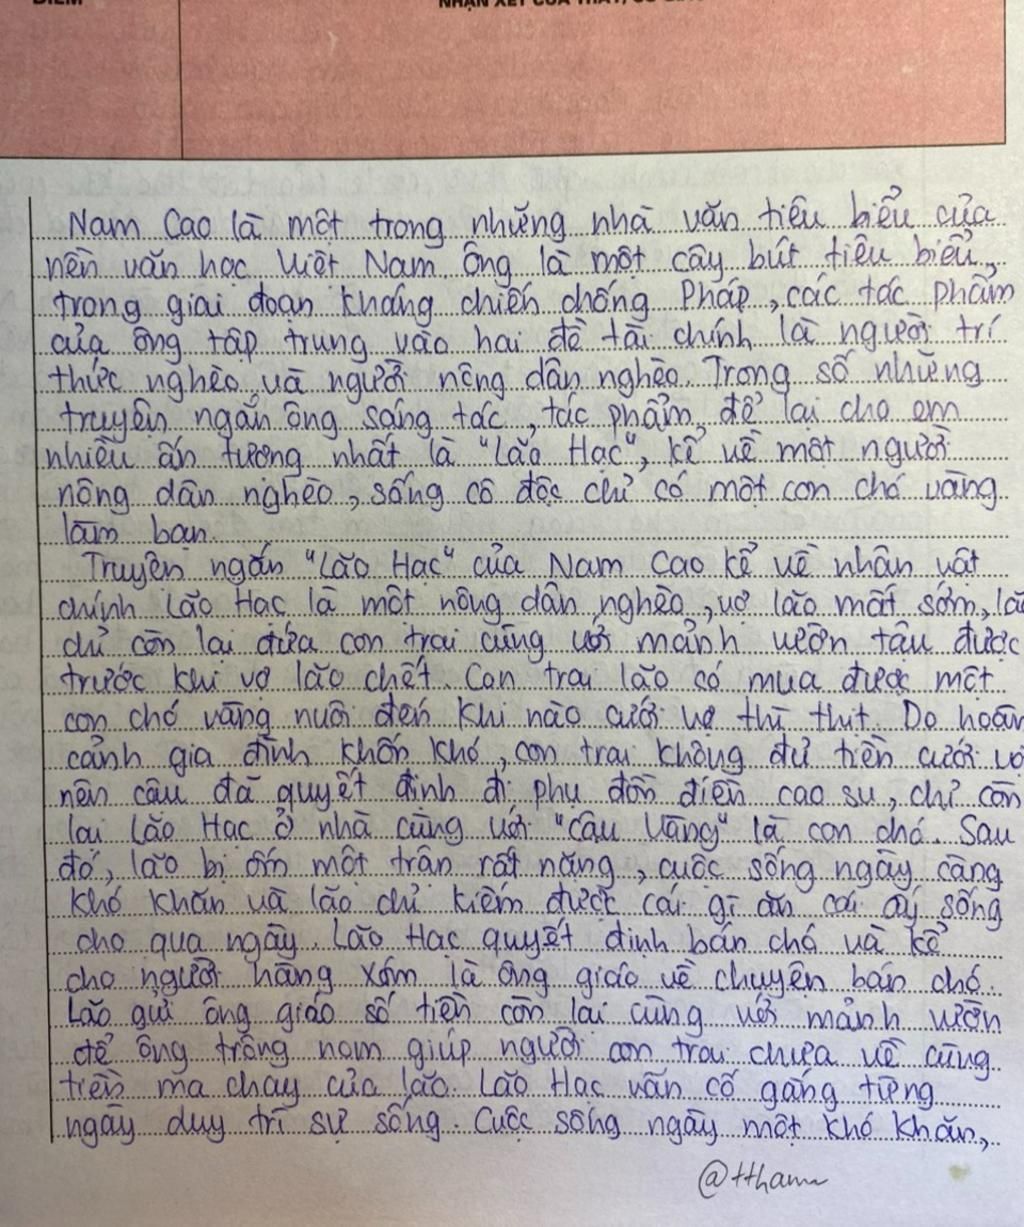 ĐIỂM
NHẬN XÉT CỦA THẦY, CÔ GIÁO
Nam Cao là một trong những nhà văn tiêu biểu của
nền văn học Việt Nam. Ông là một cây bút tiêu biểu,
trong giai đoạn kháng chiến chống Pháp, các tác phẩm
của ông tập trung vào hai đề tài chính là người trí
thức nghèo và người nông dân nghèo. Trong số những
truyện ngắn ông sáng tác, tác phẩm để lại cho em
nhiều ấn tượng nhất là "Lão Hạc", kể về một người
nông dân nghèo, sống cô độc chỉ có một con chó vàng
làm bạn.
Truyện ngắn "Lão Hạc" của Nam Cao kể về nhân vật
chính Lão Hạc là một nông dân nghèo, vợ lão mất sớm, lão
chỉ còn lại đứa con trai cùng với mảnh vườn tậu được
trước khi vợ lão chết. Con trai lão có mua được một
con chó vàng nuôi đến khi nào cưới vợ thì thịt. Do hoàn
cảnh gia đình khốn khó, con trai không đủ tiền cưới vợ
nên cậu đã quyết định đi phu đồn điền cao su, chỉ còn
lại Lão Hạc ở nhà cùng với "Cậu Vàng" là con chó. Sau
đó, lão bị ốm một trận rất nặng, cuộc sống ngày càng
khó khăn và lão chỉ kiếm được cái gì ăn cái ấy sống
cho qua ngày. Lão Hạc quyết định bán chó và kể
cho người hàng xóm là ông giáo về chuyện bán chó.
Lão gửi ông giáo số tiền còn lại cùng với mảnh vườn
để ông trông nom giúp người con trai chưa về cùng
tiền ma chay của lão. Lão Hạc vẫn cố gắng từng
ngày duy trì sự sống. Cuộc sống ngày một khó khăn,